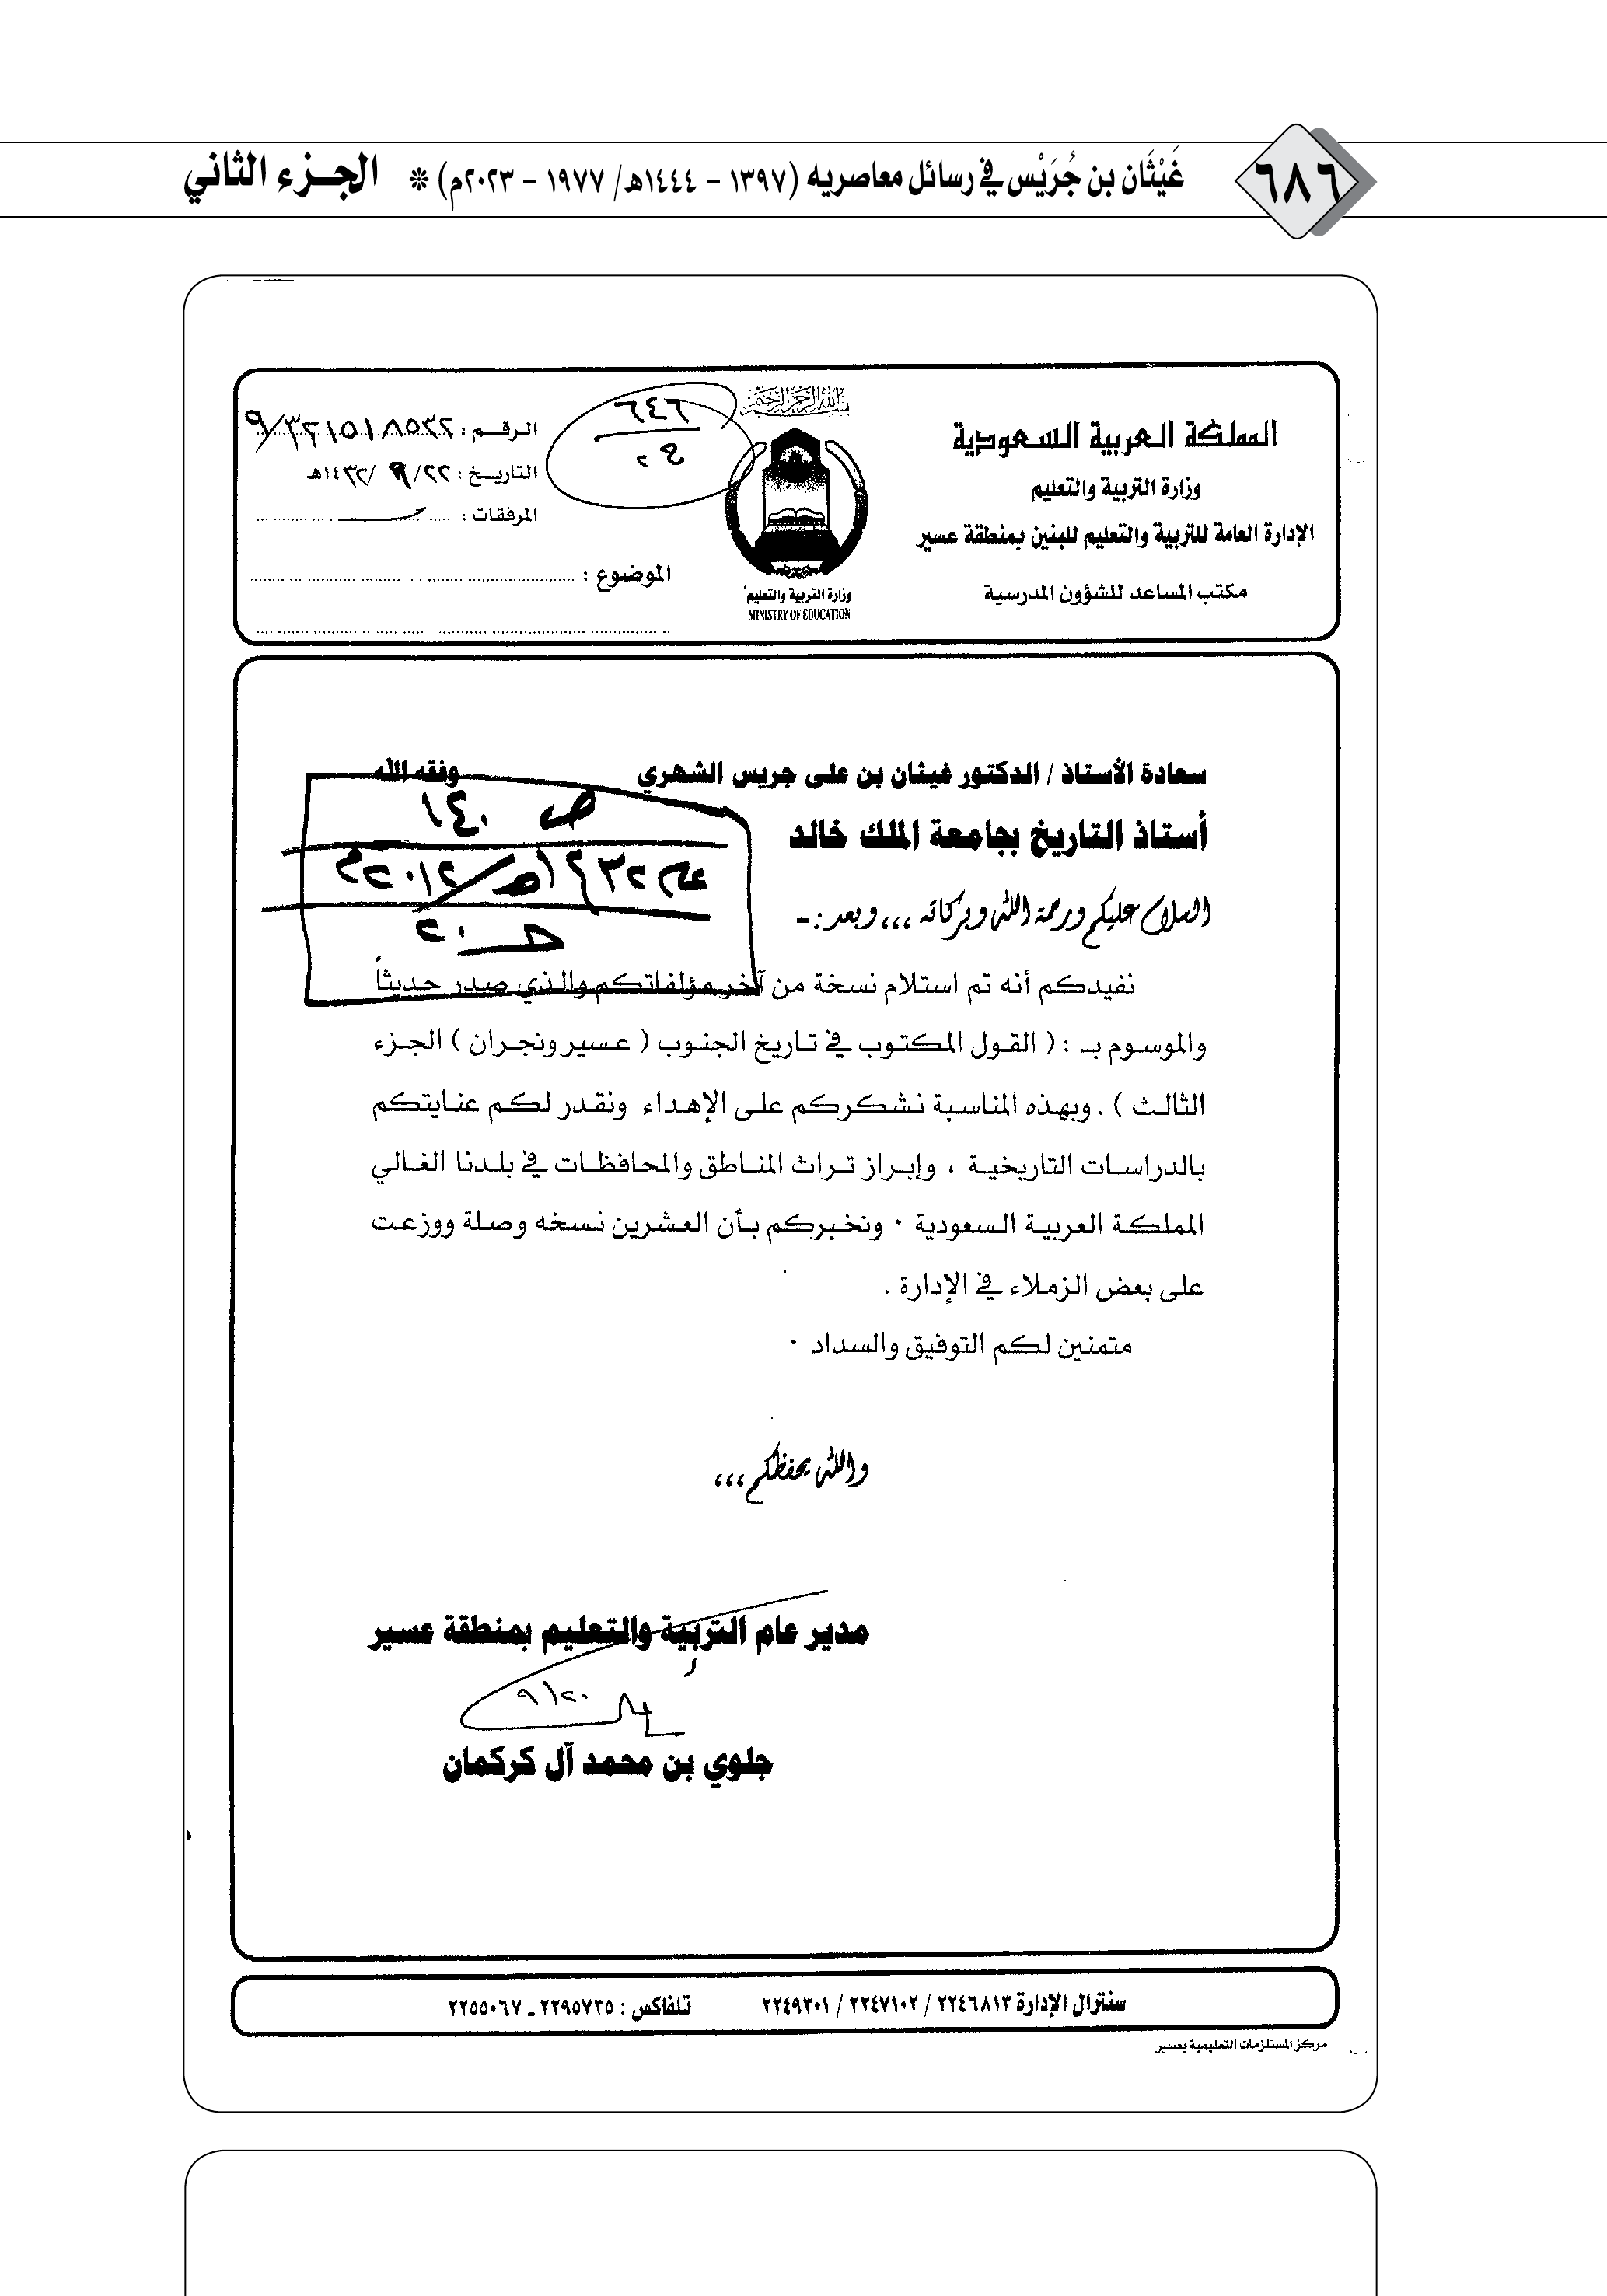 ٦٨٦
غَيْثَان بن جُرَيْس في رسائل معاصريه (١٣٩٧ - ١٤٤٤هـ/ ١٩٧٧ - ٢٠٢٣م) * الجـزء الثاني
بسم الله الرحمن الرحيم
المملكة العربية السعودية
وزارة التربية والتعليم
الإدارة العامة للتربية والتعليم للبنين بمنطقة عسير
مكتب المساعد للشؤون المدرسية
وزارة التربية والتعليم
MINISTRY OF EDUCATION
٦٤٦
الرقـم :
التاريـخ : ٢٢/ ٩ /١٤٣٢هـ
المرفقات :
الموضوع :
سعادة الأستاذ / الدكتور غيثان بن على جريس الشهري وفقه الله
أستاذ التاريخ بجامعة الملك خالد
ص ١٤٠
عام ١٤٣٢هـ/٢٠١٢م
حـ ٢٠
السلام عليكم ورحمة الله وبركاته ,,, وبعد :-
نفيدكم أنه تم استلام نسخة من آخر مؤلفاتكم والذي صدر حديثاً
والموسوم بـ : ( القول المكتوب في تاريخ الجنوب ( عسير ونجران ) الجزء
الثالث ) . وبهذه المناسبة نشكركم على الإهداء ونقدر لكم عنايتكم
بالدراسات التاريخية ، وإبراز تراث المناطق والمحافظات في بلدنا الغالي
المملكة العربية السعودية ٠ ونخبركم بأن العشرين نسخه وصلة ووزعت
على بعض الزملاء في الإدارة .
متمنين لكم التوفيق والسداد ٠
والله يحفظكم ,,,
مدير عام التربية والتعليم بمنطقة عسير
٩/٢٠
جلوي بن محمد آل كركمان
سنترال الإدارة ٢٢٤٦٨١٣ / ٢٢٤٧١٠٢ / ٢٢٤٩٣٠١ تلفاكس : ٢٢٩٥٧٣٥ ـ ٢٢٥٥٠٦٧
مركز المستلزمات التعليمية بعسير